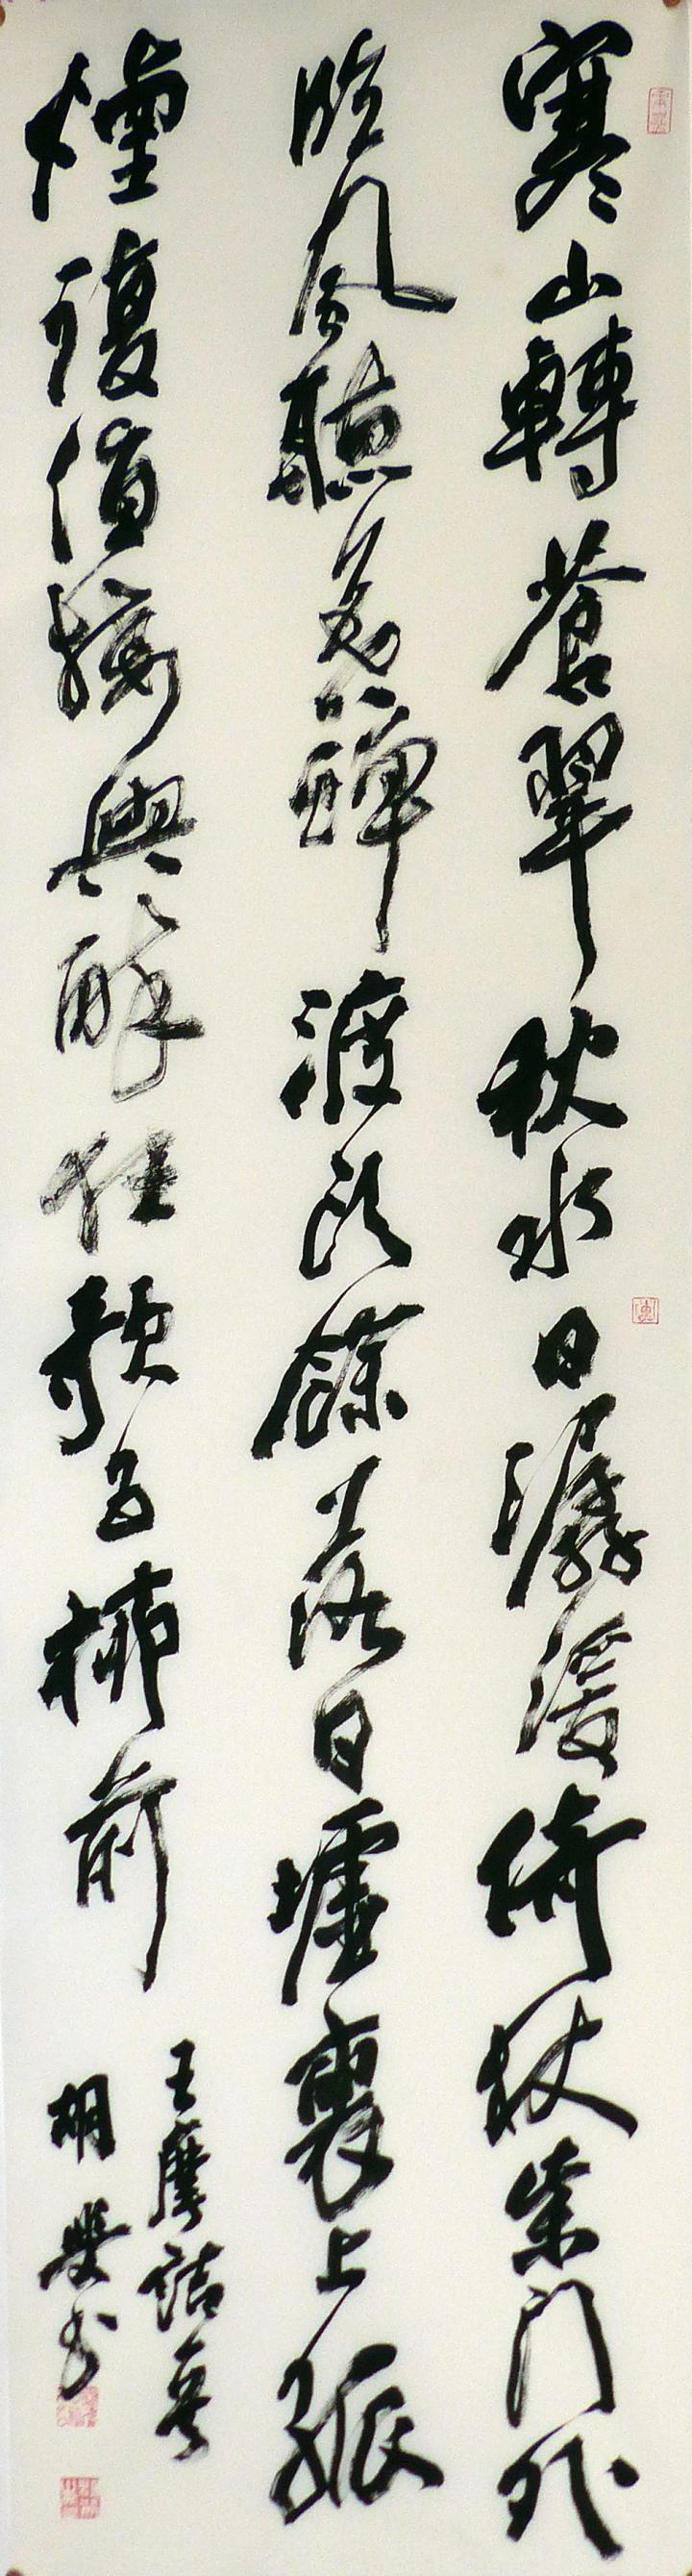 寒山轉蒼翠秋水日潺湲倚杖柴門外
臨風聽暮蟬渡頭餘落日墟裏上孤
煙復值接輿醉狂歌五柳前
王摩詰
胡